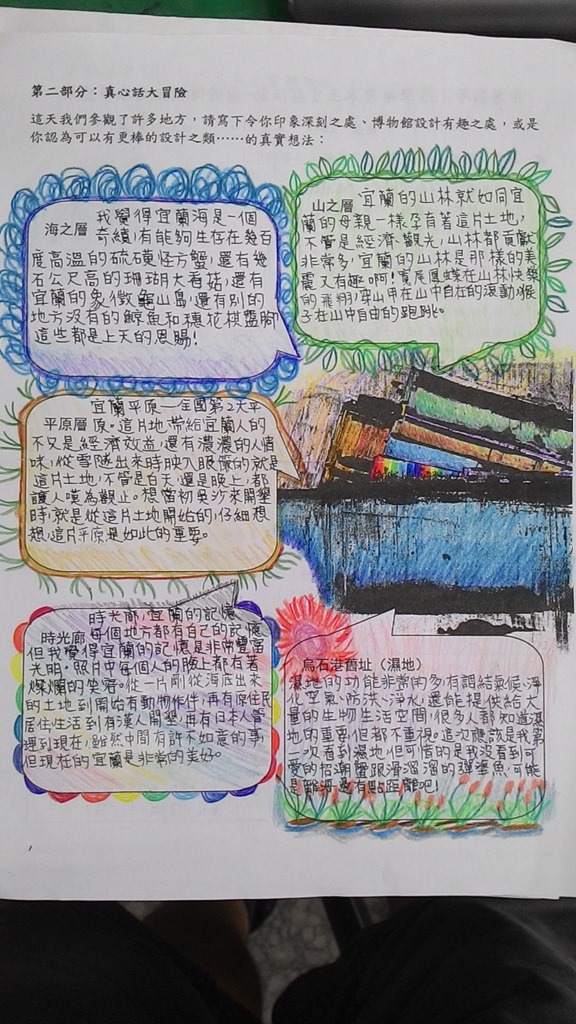 第二部分：真心話大冒險
這天我們參觀了許多地方，請寫下令你印象深刻之處、博物館設計有趣之處，或是
你認為可以有更棒的設計之類……的真實想法：
海之層
我覺得宜蘭海是一個
奇蹟，有能夠生存在幾百
度高溫的硫磺怪方蟹，還有幾
石公尺高的珊瑚大香菇，還有
宜蘭的象徵龜山島，還有別的
地方沒有的鯨魚和穗花棋盤腳
這些都是上天的恩賜！
山之層
宜蘭的山林就如同宜
蘭的母親一樣孕育著這片土地，
不管是經濟、觀光，山林都貢獻
非常多，宜蘭的山林是那樣的美
麗又有趣啊！寬尾鳳蝶在山林快樂
的飛翔，穿山甲在山中自在的滾動，猴
子在山中自由的跑跳。
平原層
宜蘭平原—全國第2大平
原。這片地帶給宜蘭人的
不又是經濟效益，還有濃濃的人情
味，從雪隧出來時映入眼簾的就是
這片土地，不管是白天，還是晚上，都
讓人嘆為觀止。想當初吳沙來開墾
時，就是從這片土地開始的，仔細想
想，這片平原是如此的重要。
時光廊
時光廊，宜蘭的記憶
每個地方都有自己的記憶
但我覺得宜蘭的記憶是非常豐富
光明。照片中每個人的臉上都有著
燦爛的笑容。從一片剛從海底出來
的土地到開始有動物作伴，再有原住民
居住、生活到有漢人開墾，再有日本人管
理到現在，雖然中間有許不如意的事
但現在的宜蘭是非常的美好。
烏石港舊址（濕地）
濕地的功能非常的多，有調結氣候、淨
化空氣、防洗、淨水，還能提供給大
量的生物生活空間，很多人都知道濕
地的重要，但都不重視。這次應該是我第
一次看到濕地，但可惜的是我沒看到可
愛的招潮蟹跟滑溜溜的彈塗魚，可能
是離海還有點距離吧！